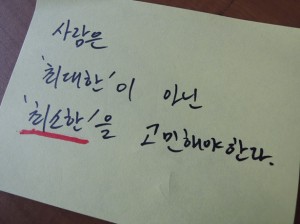 사람은
'최대한'이 아닌
'최소한'을 고민해야한다.